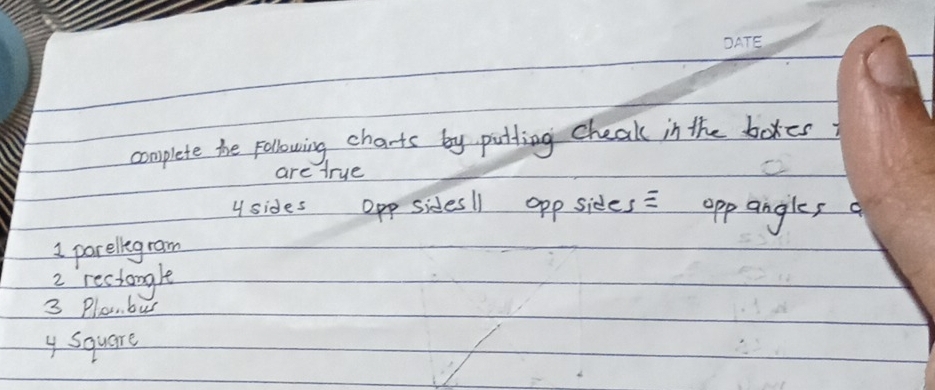 DATE
complete the Following charts by putting cheak in the boxes
are true
4 sides opp sides || opp sides ≅ opp angles
1 parellegram
2 rectangle
3
4 Square